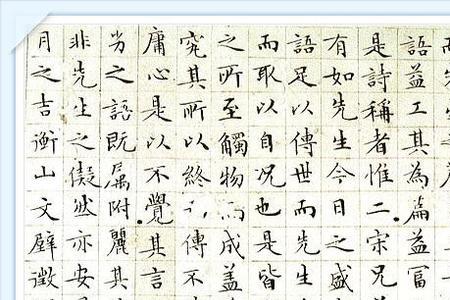 語益工其為篇益富
是詩稱者惟二宋兄
有如先生今日之盛
語足以傳世而先生
而取以自況也是皆
之所至觸物而成蓋
究其所以終傳不
庸心是以不覺其言
之語既屬附麗其
非先生之儗然亦安
月之吉衡山文璧徵